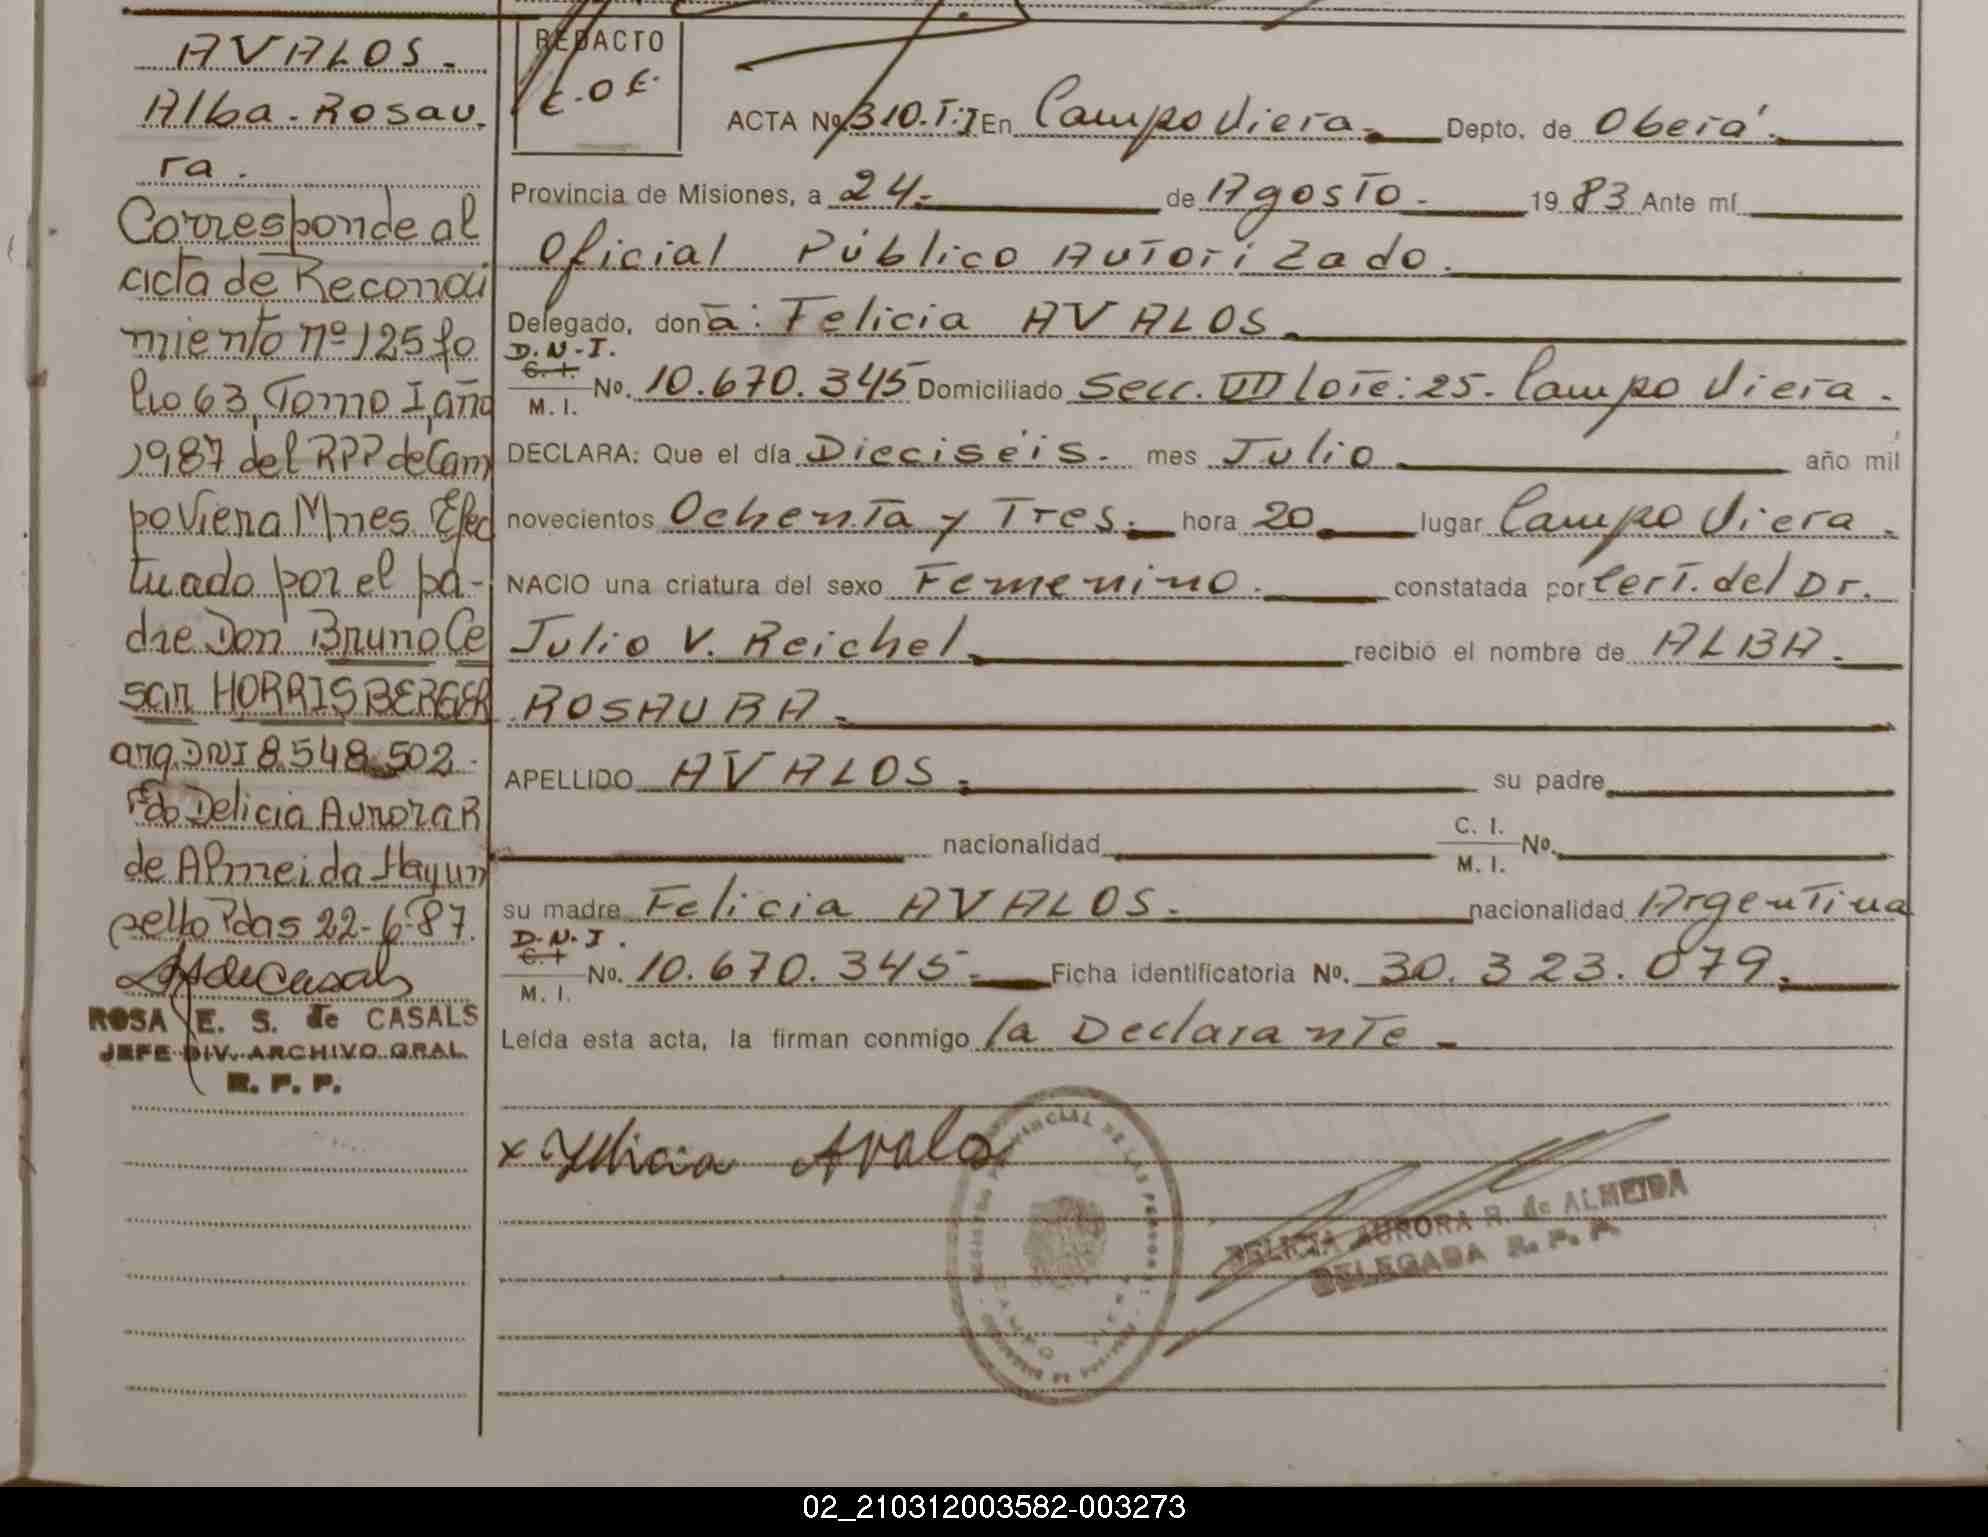 AVALOS.
Alba. Rosau.
ra.
Corresponde al
acta de Reconoci
miento nº 125 fo
lio 63, Tomo I, año
1987 del RPP de Cam
po Viera Mnes. Efec
tuado por el pa-
dre Don Bruno Ce
sar HORRISBERGER
arg. DNI 8.548.502.
Fdo Delicia Aurora R
de Almeida Hay un
sello Pdas 22-6-87.
ROSA E. S. de CASALS
JEFE DIV. ARCHIVO GRAL
R. P. P.
REDACTO
E.O.E.
ACTA Nº 310.T:I En Campo Viera. Depto. de Oberá.
Provincia de Misiones, a 24. de Agosto. 1983 Ante mí
Oficial Público Autorizado.
Delegado, don a: Felicia AVALOS.
D.N.I.
C. I.
M. I.
No. 10.670.345 Domiciliado Secc. VIII Lote: 25. Campo Viera.
DECLARA: Que el día Dieciséis. mes Julio año mil
novecientos Ochenta y Tres. hora 20. lugar Campo Viera.
NACIO una criatura del sexo Femenino. constatada por Cert. del Dr.
Julio V. Reichel recibió el nombre de ALBA.
ROSAURA.
APELLIDO AVALOS. su padre
nacionalidad C. I. M. I. No.
su madre Felicia AVALOS. nacionalidad Argentina
D.N.I.
C. I.
M. I.
No. 10.670.345. Ficha identificatoria No. 30.323.079.
Leída esta acta, la firman conmigo la Declarante.
x Felicia Avalos
DELICIA AURORA R. de ALMEIDA
DELEGADA R. P. P.
02_210312003582-003273